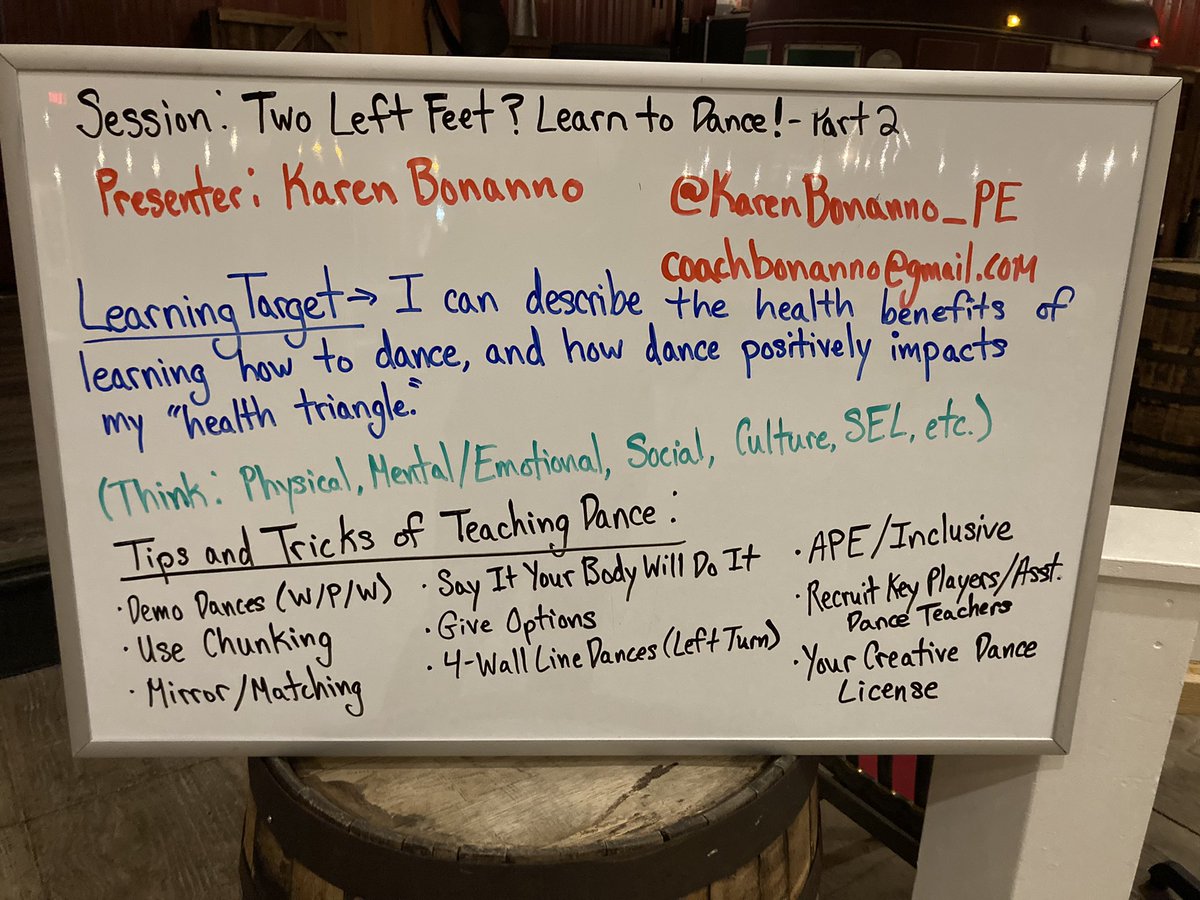 Session: Two Left Feet? Learn to Dance! - Part 2
Presenter: Karen Bonanno
@KarenBonanno_PE
coachbonanno@gmail.com
Learning Target → I can describe the health benefits of
learning how to dance, and how dance positively impacts
my "health triangle."
(Think: Physical, Mental/Emotional, Social, Culture, SEL, etc.)
Tips and Tricks of Teaching Dance:
· Demo Dances (W/P/W)
· Use Chunking
· Mirror/Matching
· Say It Your Body Will Do It
· Give Options
· 4-Wall Line Dances (Left Turn)
· APE/Inclusive
· Recruit Key Players/Asst.
Dance Teachers
· Your Creative Dance
License